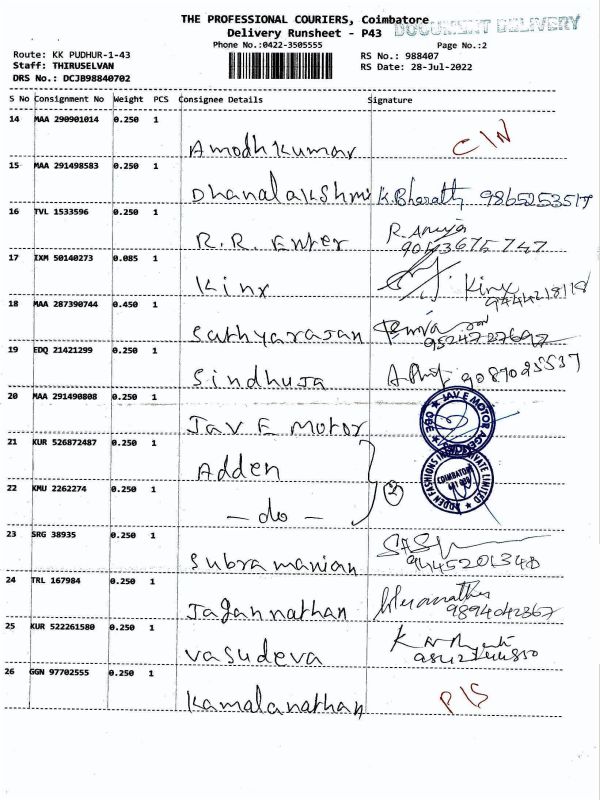 THE PROFESSIONAL COURIERS, Coimbatore
DOCUMENT DELIVERY
Delivery Runsheet - P43
Phone No.:0422-3505555
Page No.:2
Route: KK PUDHUR-1-43
RS No.: 988407
Staff: THIRUSELVAN
RS Date: 28-Jul-2022
DRS No.: DCJB98840702
S No Consignment No Weight PCS Consignee Details Signature
14 MAA 290901014 0.250 1
Amodhkumar C/N
15 MAA 291498583 0.250 1
Dhanalakshmi K.Bharath 9865253517
16 TVL 1533596 0.250 1
R.R. Enter R.
17 IXM 50140273 0.085 1
Kinx Kinx
18 MAA 287390744 0.450 1
Sathyarajan
19 EDQ 21421299 0.250 1
Sindhuja 9087025537
20 MAA 291490808 0.250 1
Jav E Motor JAV E MOTOR
21 KUR 526872487 0.250 1
Adden 2 ADDEN FASHIONS PRIVATE LIMITED
22 KMU 2262274 0.250 1
- do -
23 SRG 38935 0.250 1
Subramanian 9445201340
24 TRL 167984 0.250 1
Jagannathan 9894042367
25 KUR 522261580 0.250 1
Vasudeva
26 GGN 97702555 0.250 1
Kamalanathan P/S